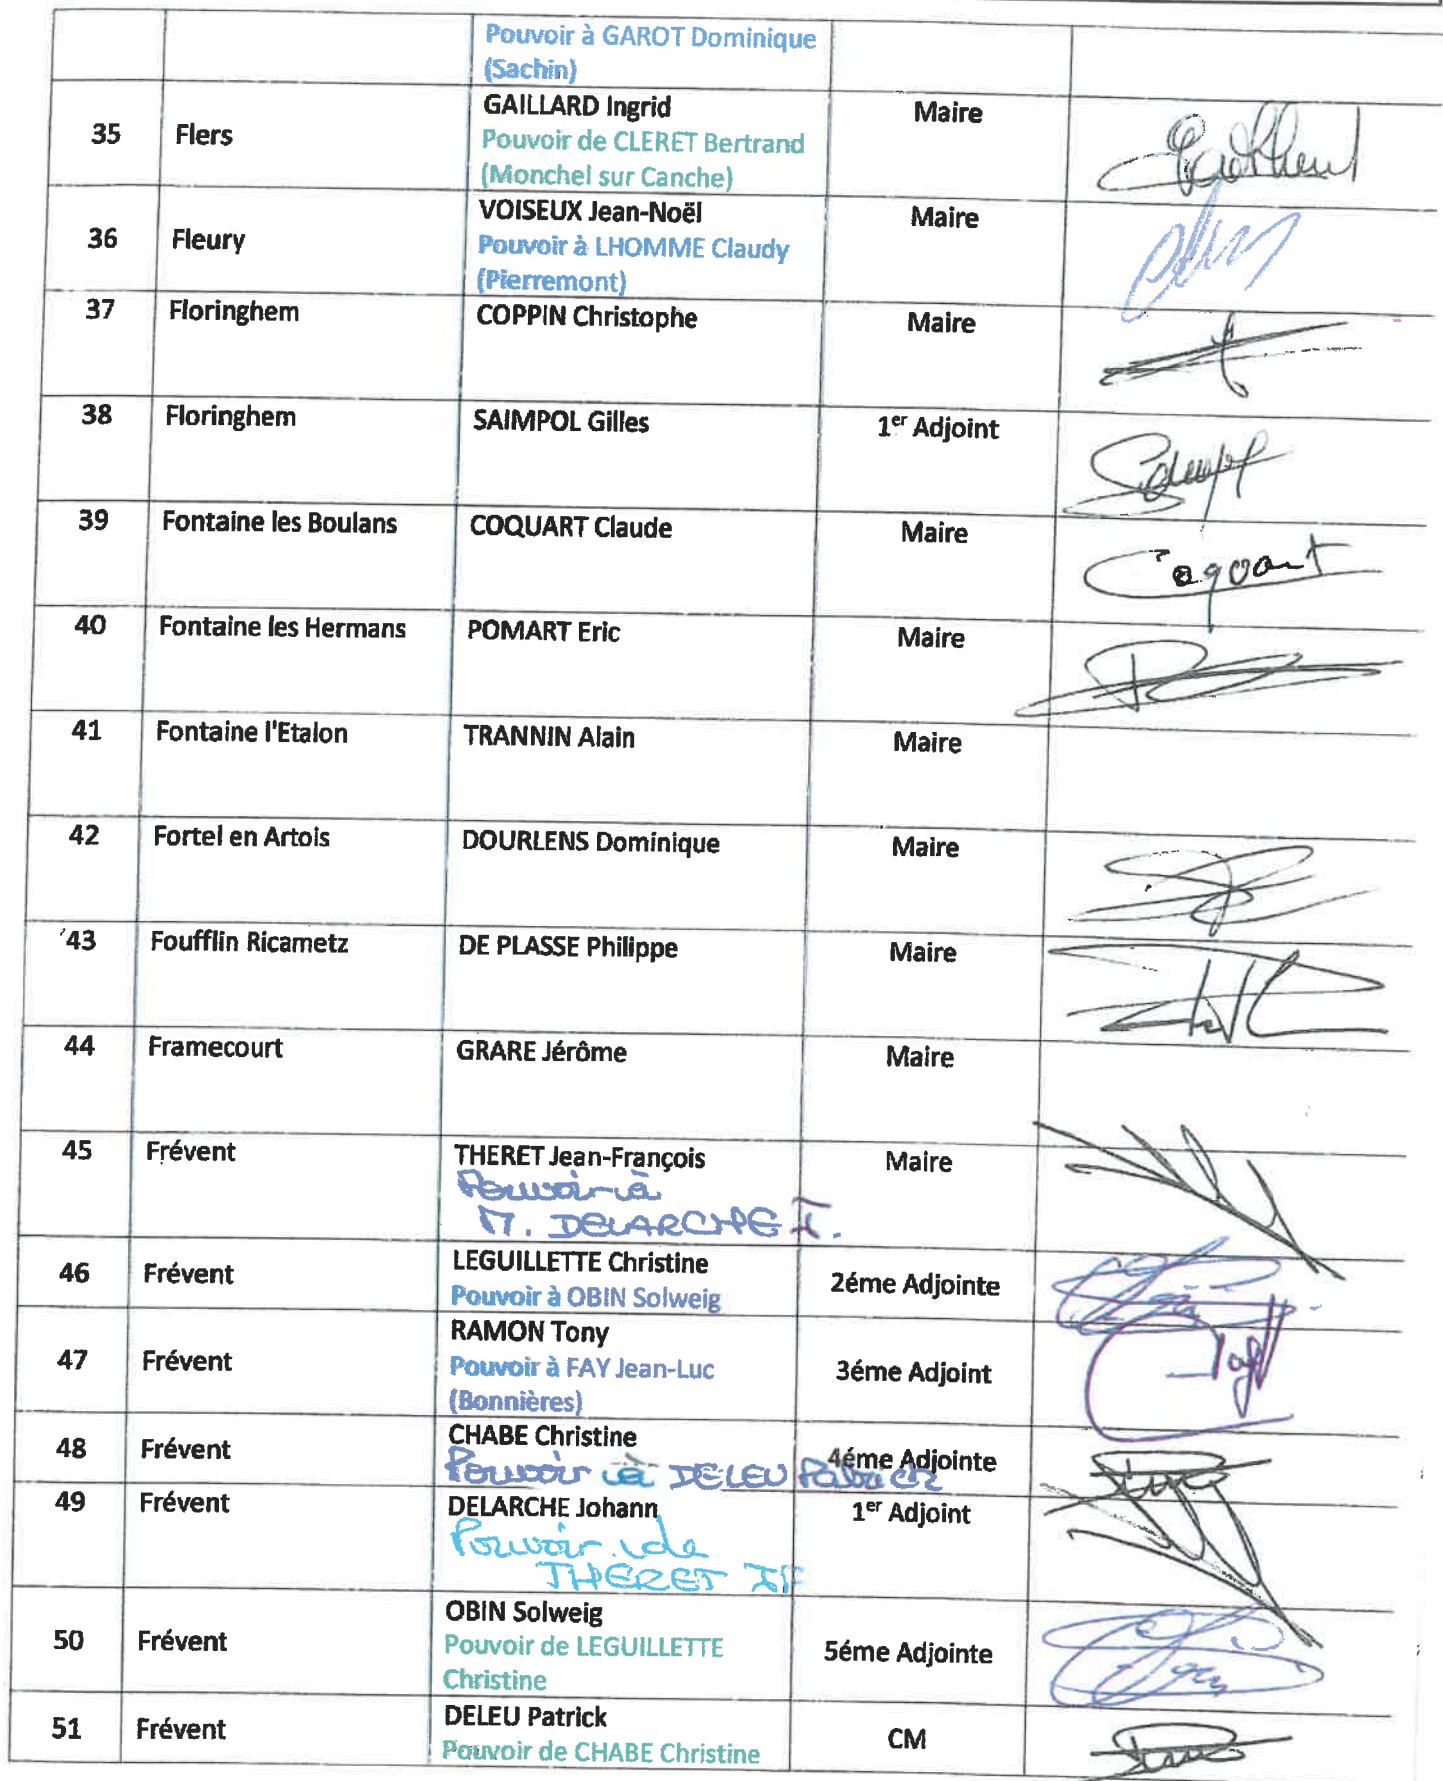 Pouvoir à GAROT Dominique
(Sachin)
35 Flers GAILLARD Ingrid Maire
Pouvoir de CLERET Bertrand
(Monchel sur Canche)
36 Fleury VOISEUX Jean-Noël Maire
Pouvoir à LHOMME Claudy
(Pierremont)
37 Floringhem COPPIN Christophe Maire
38 Floringhem SAIMPOL Gilles 1er Adjoint
39 Fontaine les Boulans COQUART Claude Maire
Coquart
40 Fontaine les Hermans POMART Eric Maire
41 Fontaine l'Etalon TRANNIN Alain Maire
42 Fortel en Artois DOURLENS Dominique Maire
43 Foufflin Ricametz DE PLASSE Philippe Maire
44 Framecourt GRARE Jérôme Maire
45 Frévent THERET Jean-François Maire
Pouvoir à
M. DELARCHE J.
46 Frévent LEGUILLETTE Christine 2éme Adjointe
Pouvoir à OBIN Solweig
47 Frévent RAMON Tony 3éme Adjoint
Pouvoir à FAY Jean-Luc
(Bonnières)
48 Frévent CHABE Christine 4éme Adjointe
Pouvoir à DELEU Patrick
49 Frévent DELARCHE Johann 1er Adjoint
Pouvoir de
THERET JF
50 Frévent OBIN Solweig 5éme Adjointe
Pouvoir de LEGUILLETTE
Christine
51 Frévent DELEU Patrick CM
Pouvoir de CHABE Christine